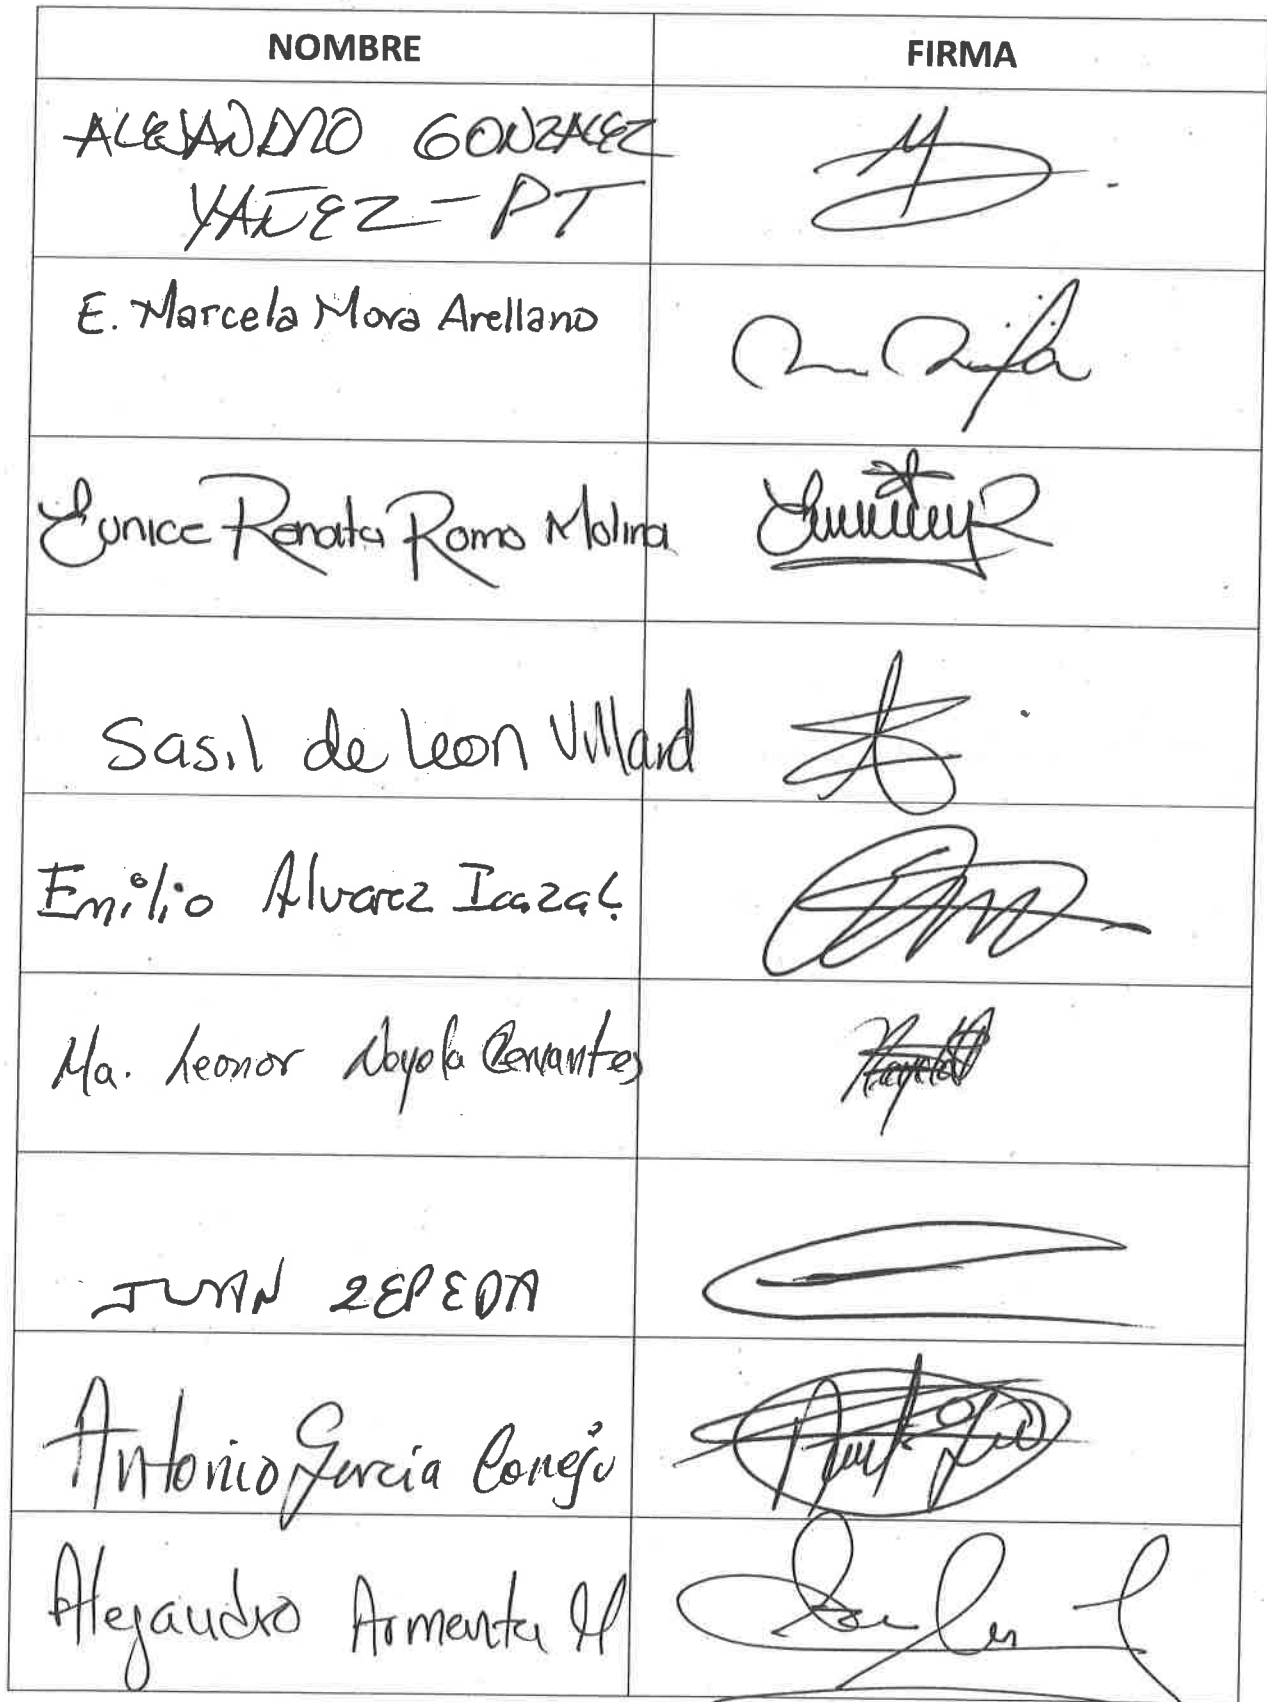 NOMBRE FIRMA
ALEJANDRO GONZALEZ
YAÑEZ - PT
E. Marcela Mora Arellano
Eunice Renata Romo Molina
Sasil de leon Villard
Emilio Alvarez Icaza L.
Ma. Leonor Noyola Cervantes
JUAN ZEPEDA
Antonio García Conejo
Alejandro Armenta M